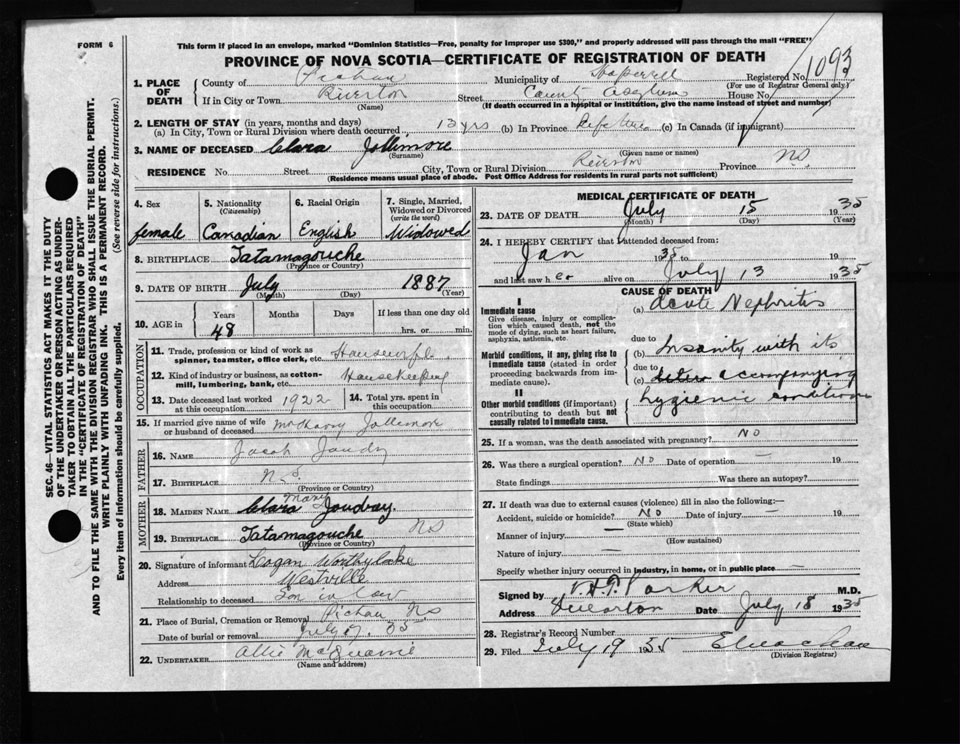 FORM 6
This form if placed in an envelope, marked "Dominion Statistics—Free, penalty for improper use $300," and properly addressed will pass through the mail "FREE"
PROVINCE OF NOVA SCOTIA—CERTIFICATE OF REGISTRATION OF DEATH
1. PLACE OF DEATH
County of Pictou Municipality of Hopewell Registered No. 1093
(For use of Registrar General only.)
If in City or Town Riverton Street County Asylum House No.
(Name) (If death occurred in a hospital or institution, give the name instead of street and number)
2. LENGTH OF STAY (in years, months and days)
(a) In City, Town or Rural Division where death occurred 13 yrs (b) In Province Life time (c) In Canada (if immigrant)
3. NAME OF DECEASED Clara Jollimore
(Surname) (Given name or names)
RESIDENCE No. Street City, Town or Rural Division Riverton Province NS
(Residence means usual place of abode. Post Office Address for residents in rural parts not sufficient)
4. Sex
female
5. Nationality
(Citizenship)
Canadian
6. Racial Origin
English
7. Single, Married, Widowed or Divorced
(write the word)
Widowed
8. BIRTHPLACE Tatamagouche
(Province or Country)
9. DATE OF BIRTH July 1887
(Month) (Day) (Year)
10. AGE in
Years Months Days If less than one day old
48 hrs. or min.
OCCUPATION
11. Trade, profession or kind of work as spinner, teamster, office clerk, etc. Housewife
12. Kind of industry or business, as cotton-mill, lumbering, bank, etc. Housekeeping
13. Date deceased last worked at this occupation 1922
14. Total yrs. spent in this occupation
15. If married give name of wife or husband of deceased Jollimore
FATHER
16. NAME Jacob
17. BIRTHPLACE N.S
(Province or Country)
MOTHER
18. MAIDEN NAME Clara Mary Joudray.
19. BIRTHPLACE Tatamagouche NS
(Province or Country)
20. Signature of informant Logan Worthylake
Address Westville
Relationship to deceased Son in law
21. Place of Burial, Cremation or Removal Pictou NS
Date of burial or removal July 17. 35
22. UNDERTAKER Allie McQuarrie
(Name and address)
MEDICAL CERTIFICATE OF DEATH
23. DATE OF DEATH July 15 1935
(Month) (Day) (Year)
24. I HEREBY CERTIFY that I attended deceased from:
Jan 1935 to 19
and last saw her alive on July 13 1935
CAUSE OF DEATH
I
Immediate cause
Give disease, injury or complication which caused death, not the mode of dying, such as heart failure, asphyxia, asthenia, etc.
(a) Acute Nephritis
due to
Morbid conditions, if any, giving rise to immediate cause (stated in order proceeding backwards from immediate cause).
(b) Insanity, with its
due to
(c) accompanying
II
Other morbid conditions (if important) contributing to death but not causally related to immediate cause.
hygienic conditions
25. If a woman, was the death associated with pregnancy? NO
26. Was there a surgical operation? NO Date of operation — 19
State findings Was there an autopsy?
27. If death was due to external causes (violence) fill in also the following:—
Accident, suicide or homicide? NO Date of injury — 19
(State which)
Manner of injury —
(How sustained)
Nature of injury —
Specify whether injury occurred in industry, in home, or in public place —
Signed by V.H.T. Parker M.D.
Address Date July 18 1935
28. Registrar's Record Number
29. Filed July 19 1935
(Division Registrar)
SEC. 46—VITAL STATISTICS ACT MAKES IT THE DUTY
OF THE UNDERTAKER OR PERSON ACTING AS UNDER-
TAKER TO OBTAIN ALL THE PARTICULARS REQUIRED
IN THE "CERTIFICATE OF REGISTRATION OF DEATH"
AND TO FILE THE SAME WITH THE DIVISION REGISTRAR WHO SHALL ISSUE THE BURIAL PERMIT.
WRITE PLAINLY WITH UNFADING INK. THIS IS A PERMANENT RECORD.
Every item of information should be carefully supplied. (See reverse side for instructions.)